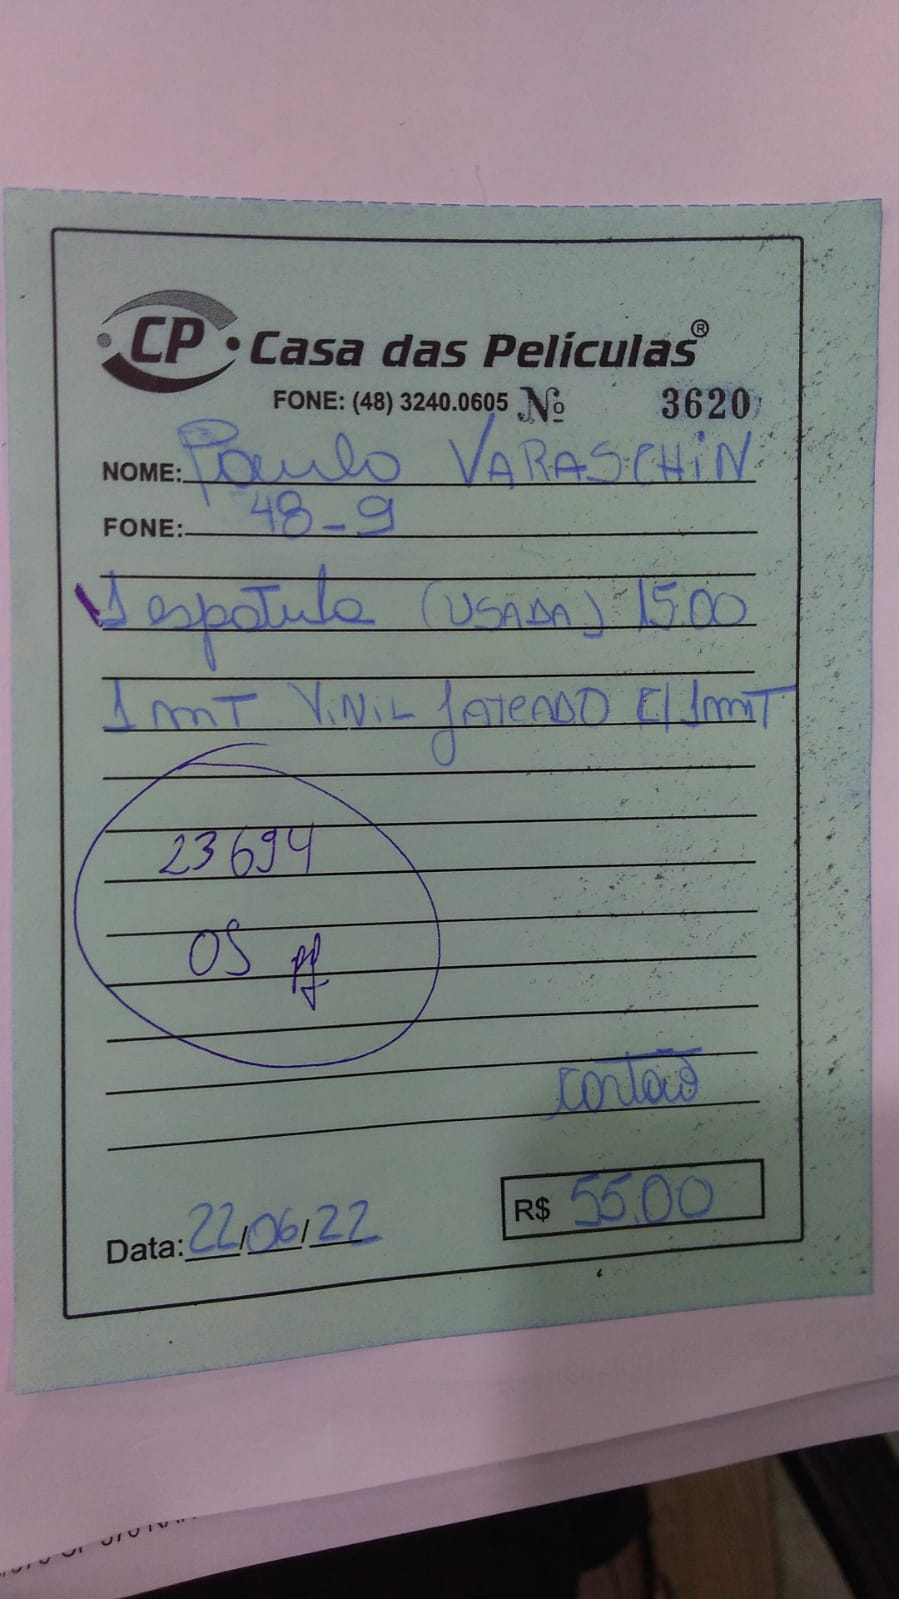 CP Casa das Películas®
FONE: (48) 3240.0605 Nº 3620
NOME: Paulo VARASCHIN
FONE: 48-9
1 espatula (USADA) 15.00
1 mT ViNiL jATEADO C/ 1mT
23694
OS
cartão
Data: 22/06/22 R$ 55.00